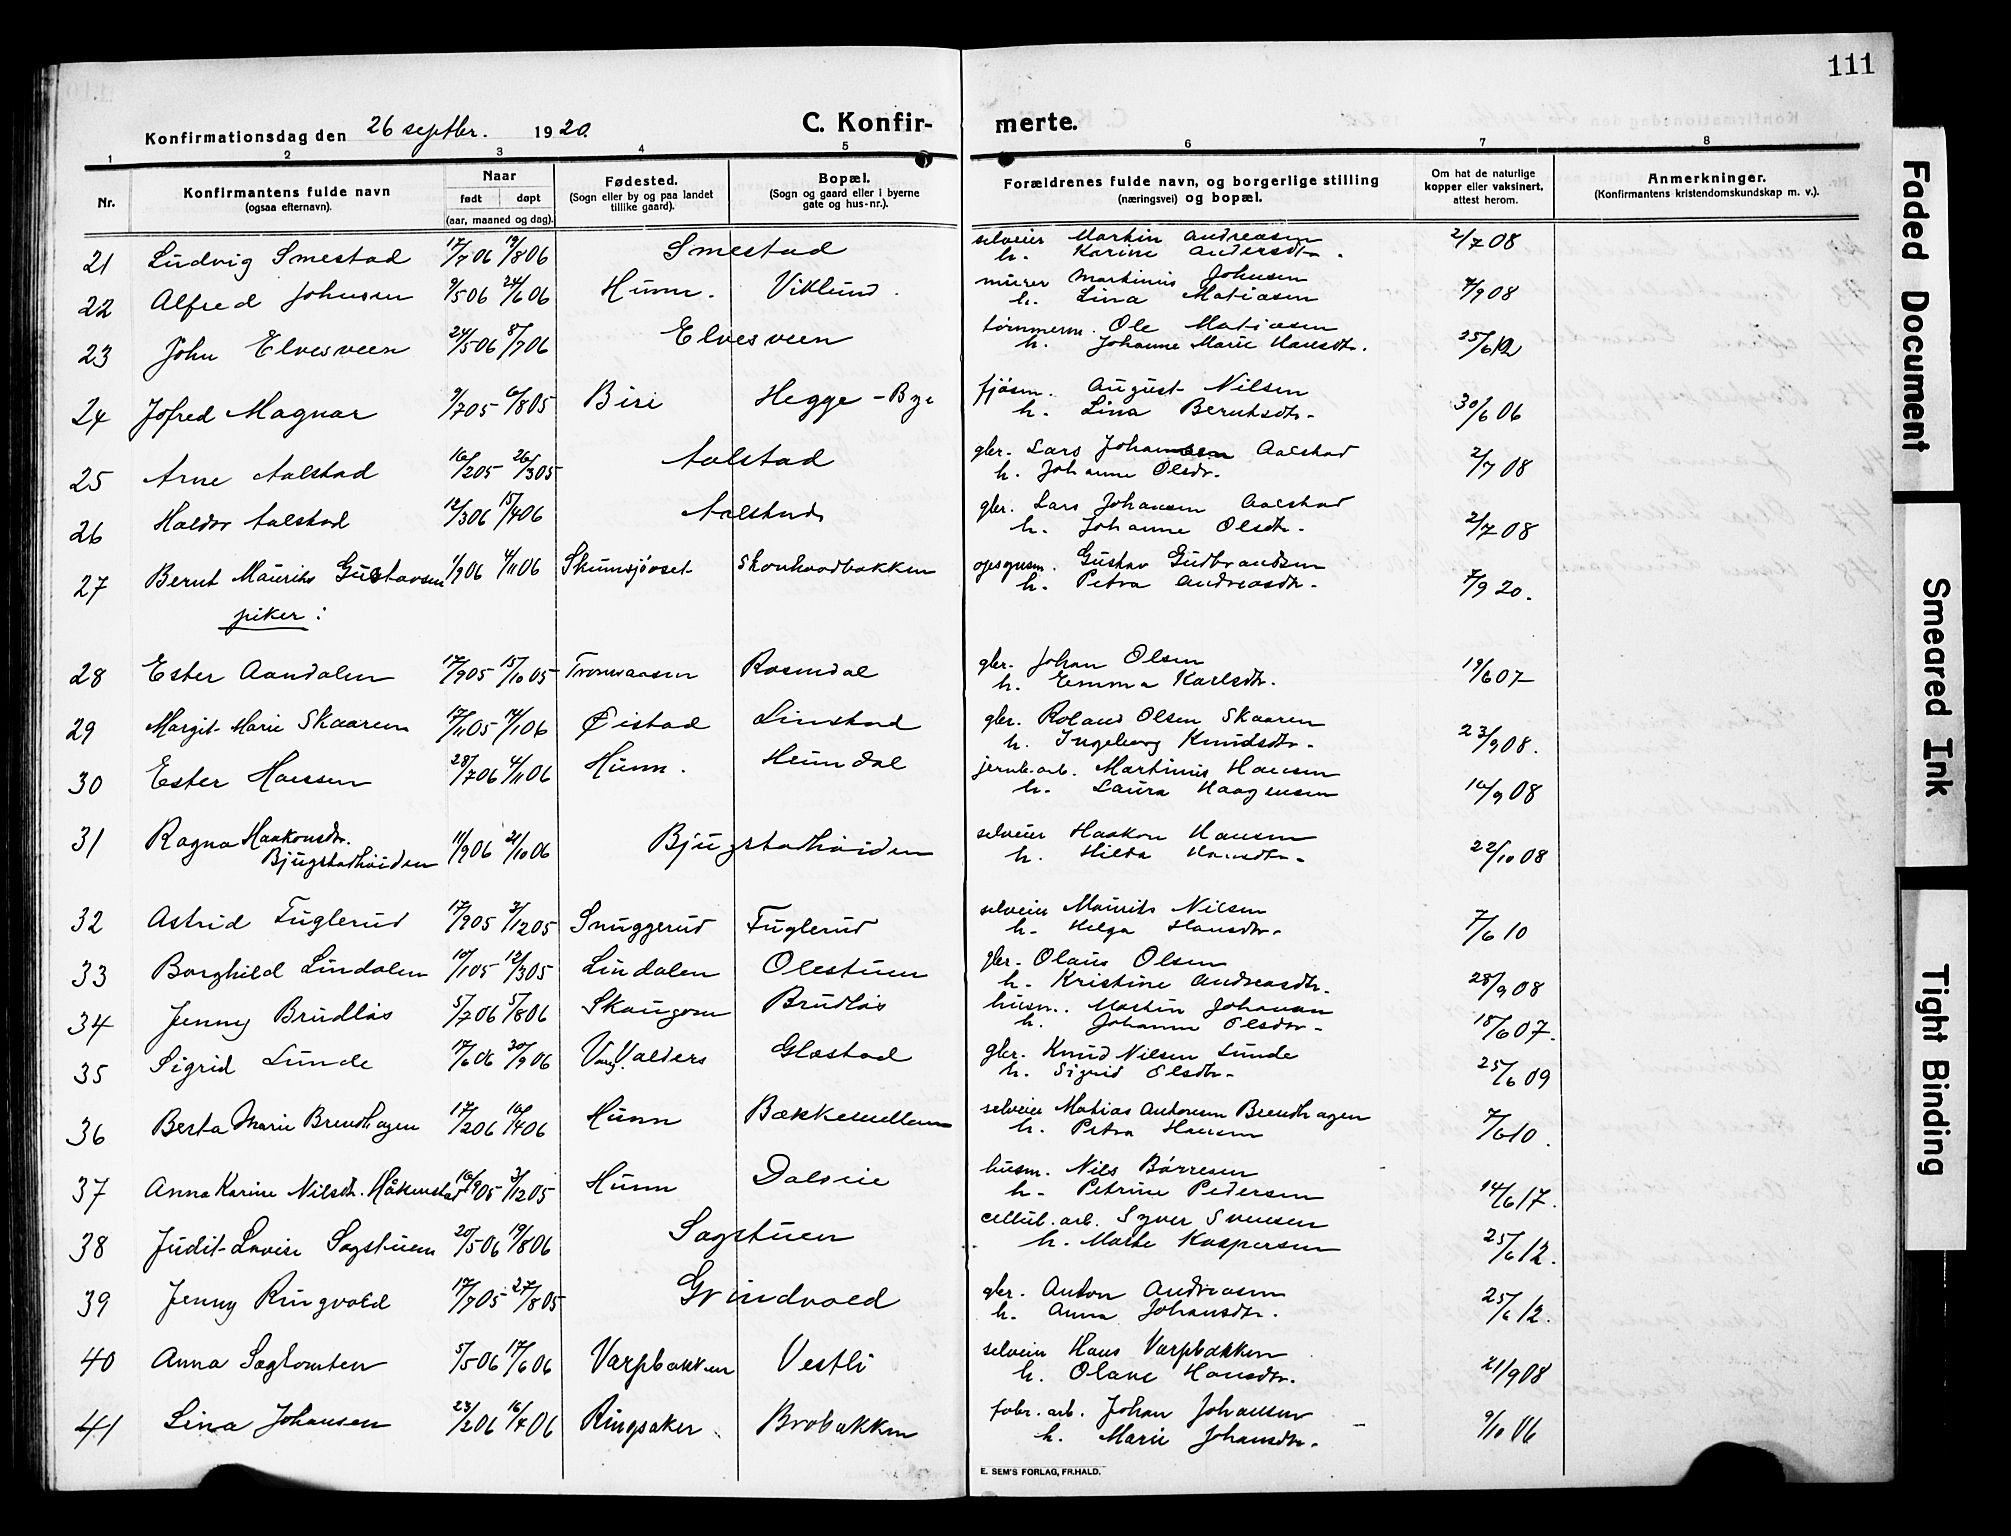 111
Konfirmationsdag den 26 septbr. 1920. C. Konfir- merte.
1 2 3 4 5 6 7 8
Nr. Konfirmantens fulde navn (ogsaa efternavn). Naar født døpt (aar, maaned og dag). Fødested. (Sogn eller by og paa landet tillike gaard). Bopæl. (Sogn og gaard eller i byerne gate og hus-nr.). Forældrenes fulde navn, og borgerlige stilling (næringsvei) og bopæl. Om hat de naturlige kopper eller vaksinert, attest herom. Anmerkninger. (Konfirmantens kristendomskundskap m. v.).
21 Ludvig Smestad 17/7 06 19/8 06 Smestad selveier Martin Andreasen 2/7 08
h. Karine Andersdtr.
22 Alfred Johnsen 9/5 06 24/6 06 Hunn. Viklund. murer Martinius Johnsen 7/9 08
h. Lina Matiasen
23 John Elvesveen 24/5 06 8/7 06 Elvesveen tømmerm. Ole Matiasen 25/6 12
h. Johanne Marie Hansdtr.
24 Jofred Magnar 9/7 05 6/8 05 Biri Hegge-Bye fjøsm. August Nilsen 30/6 06
h. Lina Berntsdtr.
25 Arne Aalstad 16/2 05 26/3 05 Aalstad gbr. Lars Johansen Aalstad 2/7 08
h. Johanne Olsdr.
26 Haldor Aalstad 12/3 06 15/4 06 Aalstad gbr. Lars Johansen Aalstad 2/7 08
h. Johanne Olsdtr.
27 Bernt Maurits Gustavsen 1/9 06 4/11 06 Skumsjøvset Skonhovdbakken opsynsm. Gustav Gudbrandsen 7/9 20.
h. Petra Andreasdtr.
piker:
28 Ester Aandalen 17/9 05 15/10 05 Tronesaasen Rosendal gbr. Johan Olsen 19/6 07
h. Emma Karlsdtr.
29 Margit Marie Skaaren 17/11 05 14/1 06 Øistad Linstad gbr. Roland Olsen Skaaren 23/9 08.
h. Ingeborg Knudsdtr.
30 Ester Hansen 28/7 06 4/11 06 Hunn. Heimdal jernb.arb. Martinius Hansen 14/9 08
h. Laura Haagensen
31 Ragna Haakonsdr. Bjugstadhøiden 11/9 06 21/10 06 Bjugstadhøiden selveier Haakon Hansen 22/10 08
h. Hilda Hansdtr.
32 Astrid Fuglerud 17/9 05 3/12 05 Snuggerud Fuglerud selveier Maurits Nilsen 7/6 10
h. Helga Hansdtr.
33 Borghild Lindalen 10/1 05 12/3 05 Lindalen Olestuen gbr. Olaus Olsen 28/9 08
h. Kristine Andreasdtr.
34 Jenny Brudlós 5/7 06 5/8 06 Skaugom Brudlós husm. Martin Johansen 18/6 07.
h. Johanne Olsdtr.
35 Sigrid Lunde 17/6 06 30/9 06 Vang. Valders Glæstad gbr. Knud Nilsen Lunde 25/6 09
h. Sigrid Olsdtr.
36 Berta Marie Brendhagen 17/2 06 16/4 06 Hunn Bækkemellem selveier Matias Antonsen Brendhagen 7/6 10.
h. Petra Hansen
37 Anna Karine Nilsdtr. Håkenstad 16/9 05 3/12 05 Hunn Dalseie husm. Nils Børresen 14/6 17.
h. Petrine Pedersen
38 Judit Lovise Sagstuen 20/5 06 19/8 06 Sagstuen cellul.arb. Syver Svensen 25/6 12.
h. Marte Kaspersen
39 Jenny Ringvold 17/7 05 27/8 05 Grindvold gbr. Anton Andreasen 25/6 12.
h. Anna Johansdtr.
40 Anna Sagtomten 5/5 06 17/6 06 Varpbakken Vestli selveier Hans Varpbakken 21/9 08
h. Olave Hansdtr.
41 Lina Johansen 23/2 06 16/4 06 Ringsaker. Brobakken fabr.arb. Johan Johansen 9/10 06
h. Marie Johansdtr.
E. SEM'S FORLAG, FR.HALD.
Faded Document
Smeared Ink
Tight Binding